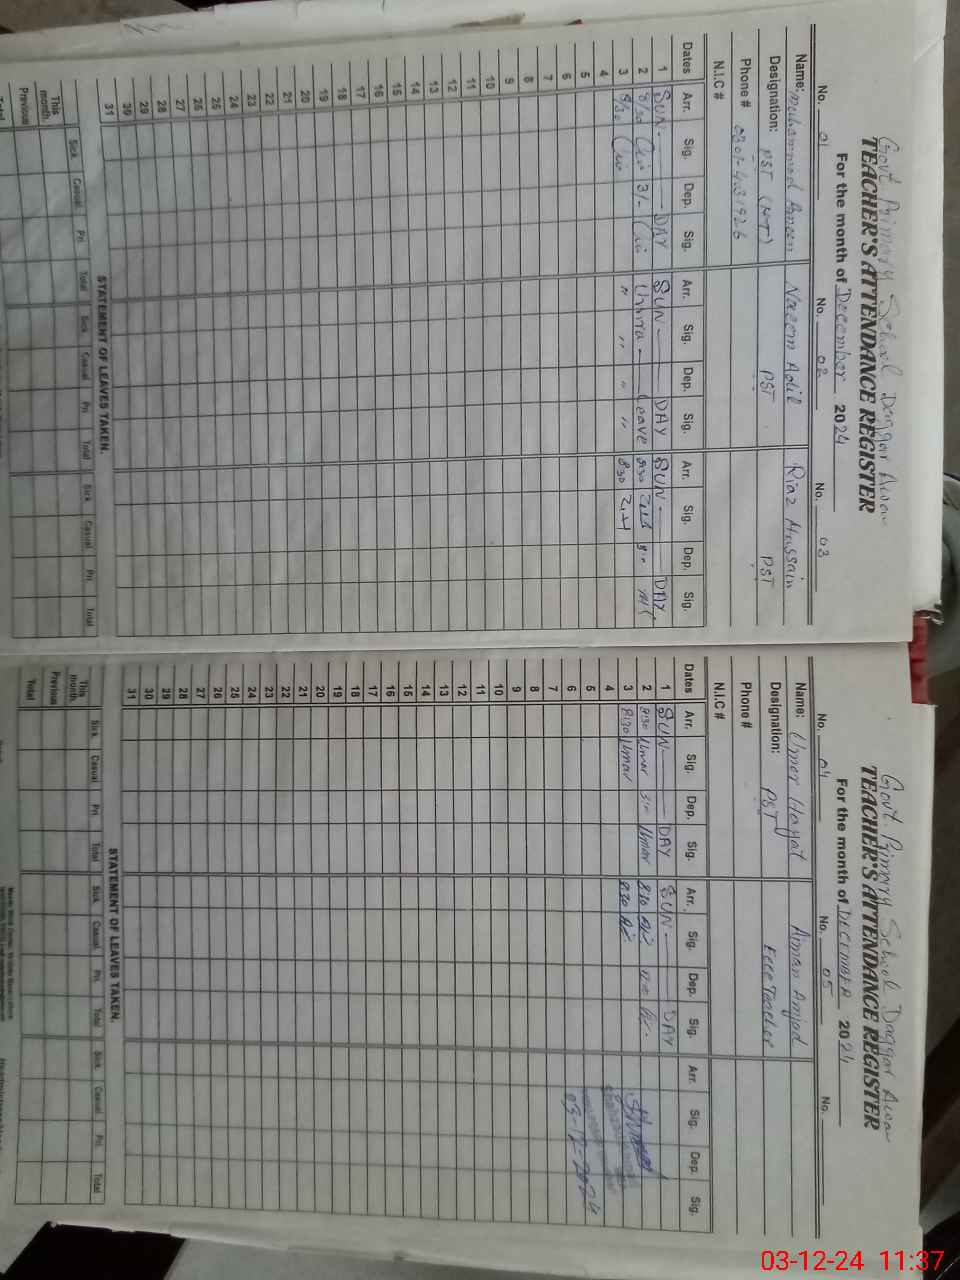 Govt Primary School Daggar Awan
TEACHER'S ATTENDANCE REGISTER
For the month of December 2024
No. 01 No. 02 No. 03
Name: Muhammad Ameen Naeem Adil Riaz Hussain
Designation: PST (H-T) PST PST
Phone #
N.I.C #
Dates Arr. Sig. Dep. Sig. Arr. Sig. Dep. Sig. Arr. Sig. Dep. Sig.
1 SUN DAY SUN DAY SUN DAY
2 8/30 3/- Leave 8:30
3 8/30 " " " " 830
4
5
6
7
8
9
10
11
12
13
14
15
16
17
18
19
20
21
22
23
24
25
26
27
28
29
30
31
STATEMENT OF LEAVES TAKEN.
Sick Casual Pri. Total Sick Casual Pri. Total Sick Casual Pri. Total
This month
Previous
Total
Govt. Primary School Daggar Awan
TEACHER'S ATTENDANCE REGISTER
For the month of DECEMBER 2024
No. 04 No. 05 No.
Name: Umer Hayat Aiman Amjad
Designation: PST
Phone #
N.I.C #
Dates Arr. Sig. Dep. Sig. Arr. Sig. Dep. Sig. Arr. Sig. Dep. Sig.
1 SUN DAY SUN DAY
2 8:30 Umar Umar 8:30
3 8:30 Umar 8:30
4
5
6 03-12-2024
7
8
9
10
11
12
13
14
15
16
17
18
19
20
21
22
23
24
25
26
27
28
29
30
31
STATEMENT OF LEAVES TAKEN.
Sick Casual Pri. Total Sick Casual Pri. Total Sick Casual Pri. Total
This month
Previous
Total
03-12-24 11:37